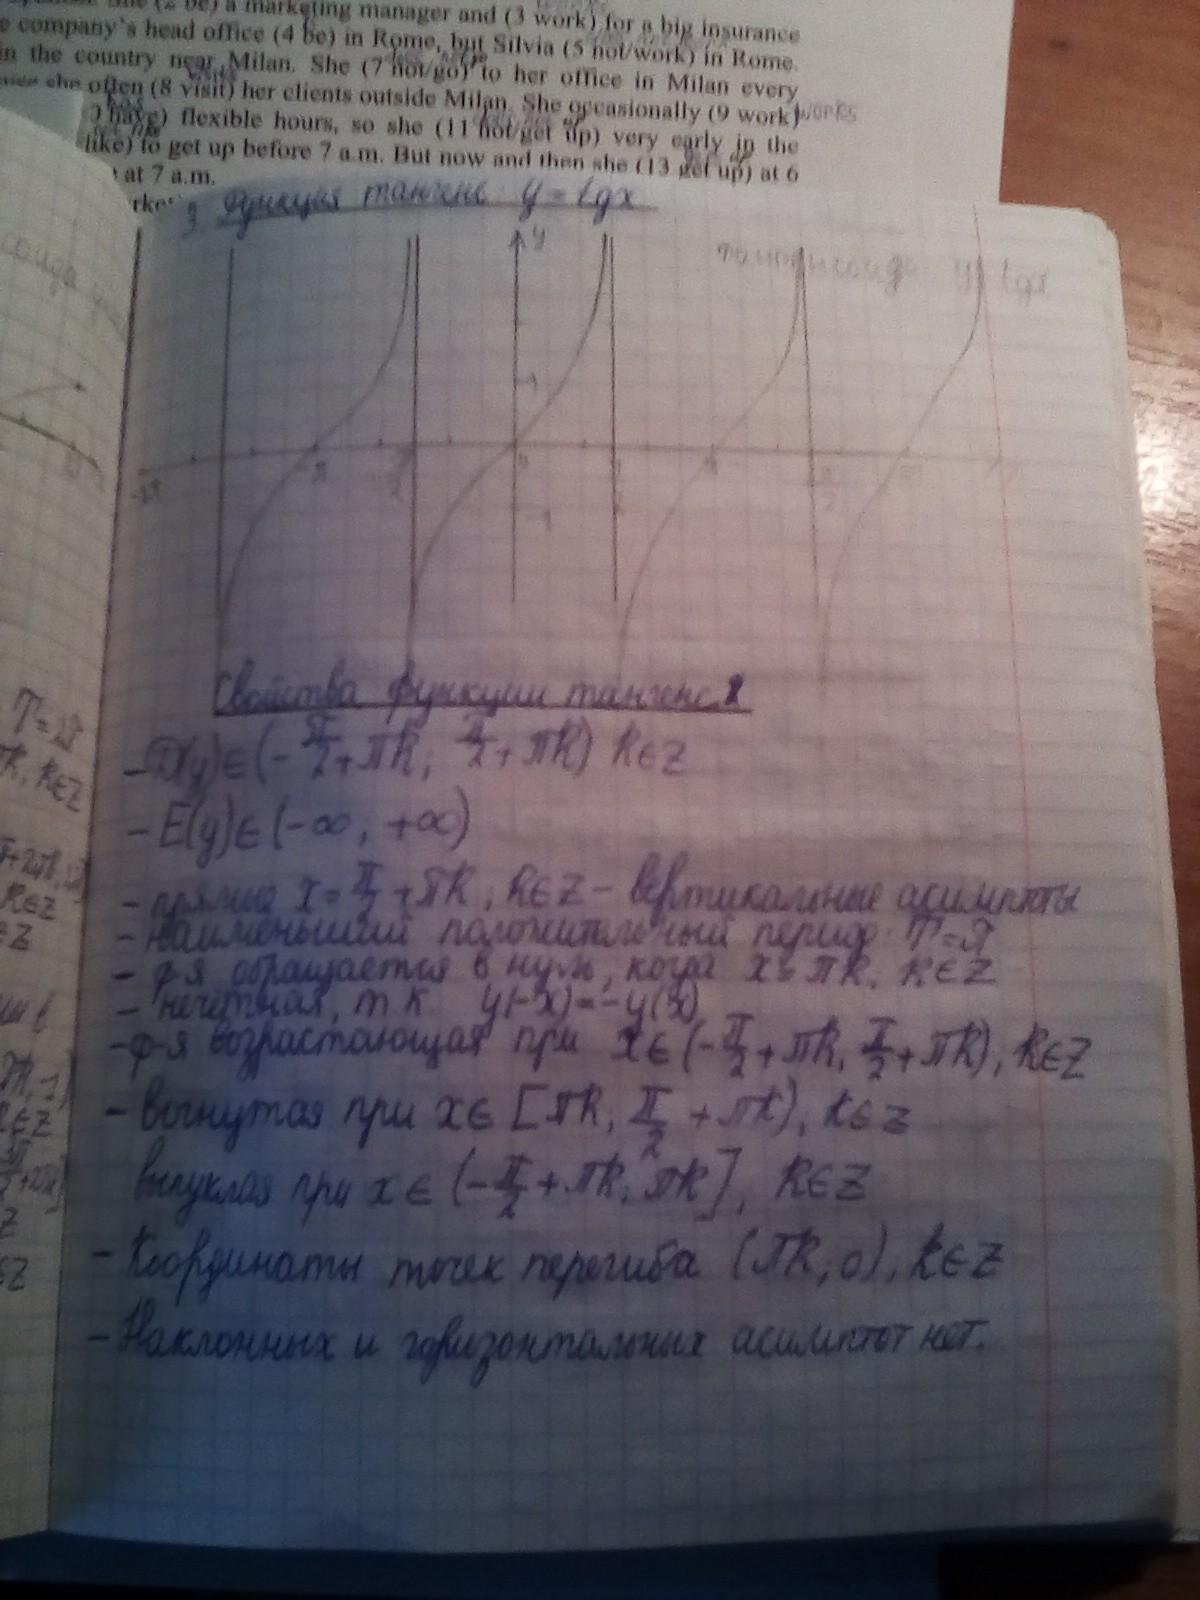 a marketing manager and (3 work) for a big insurance
company's head office (4 be) in Rome, but Silvia (5 not/work) in Rome.
in the country near Milan. She (7 not/go) to her office in Milan every
she often (8 visit) her clients outside Milan. She occasionally (9 work) works
have) flexible hours, so she (11 not/get up) very early in the
like) to get up before 7 a.m. But now and then she (13 get up) at 6
at 7 a.m.
Функция тангенс y = tgx
y
тангенсоида y = tgx
1
-2π
-π
-1
Свойства функции тангенса
- D(y)∈(-π/2+πk; π/2+πk) k∈Z
- E(y)∈(-∞; +∞)
- прямые x = π/2 + πk, k∈Z - вертикальные асимптоты
- наименьший положительный период T=π
- ф-я обращается в нуль, когда x = πk, k∈Z
- нечётная, т.к. y(-x)=-y(x)
- ф-я возрастающая при x∈(-π/2+πk, π/2+πk), k∈Z
- вогнутая при x∈[πk; π/2+πk), k∈Z
выпуклая при x∈(-π/2+πk; πk], k∈Z
- Координаты точек перегиба (πk; 0), k∈Z
- Наклонных и горизонтальных асимптот нет.
T=2π
k∈Z
k∈Z